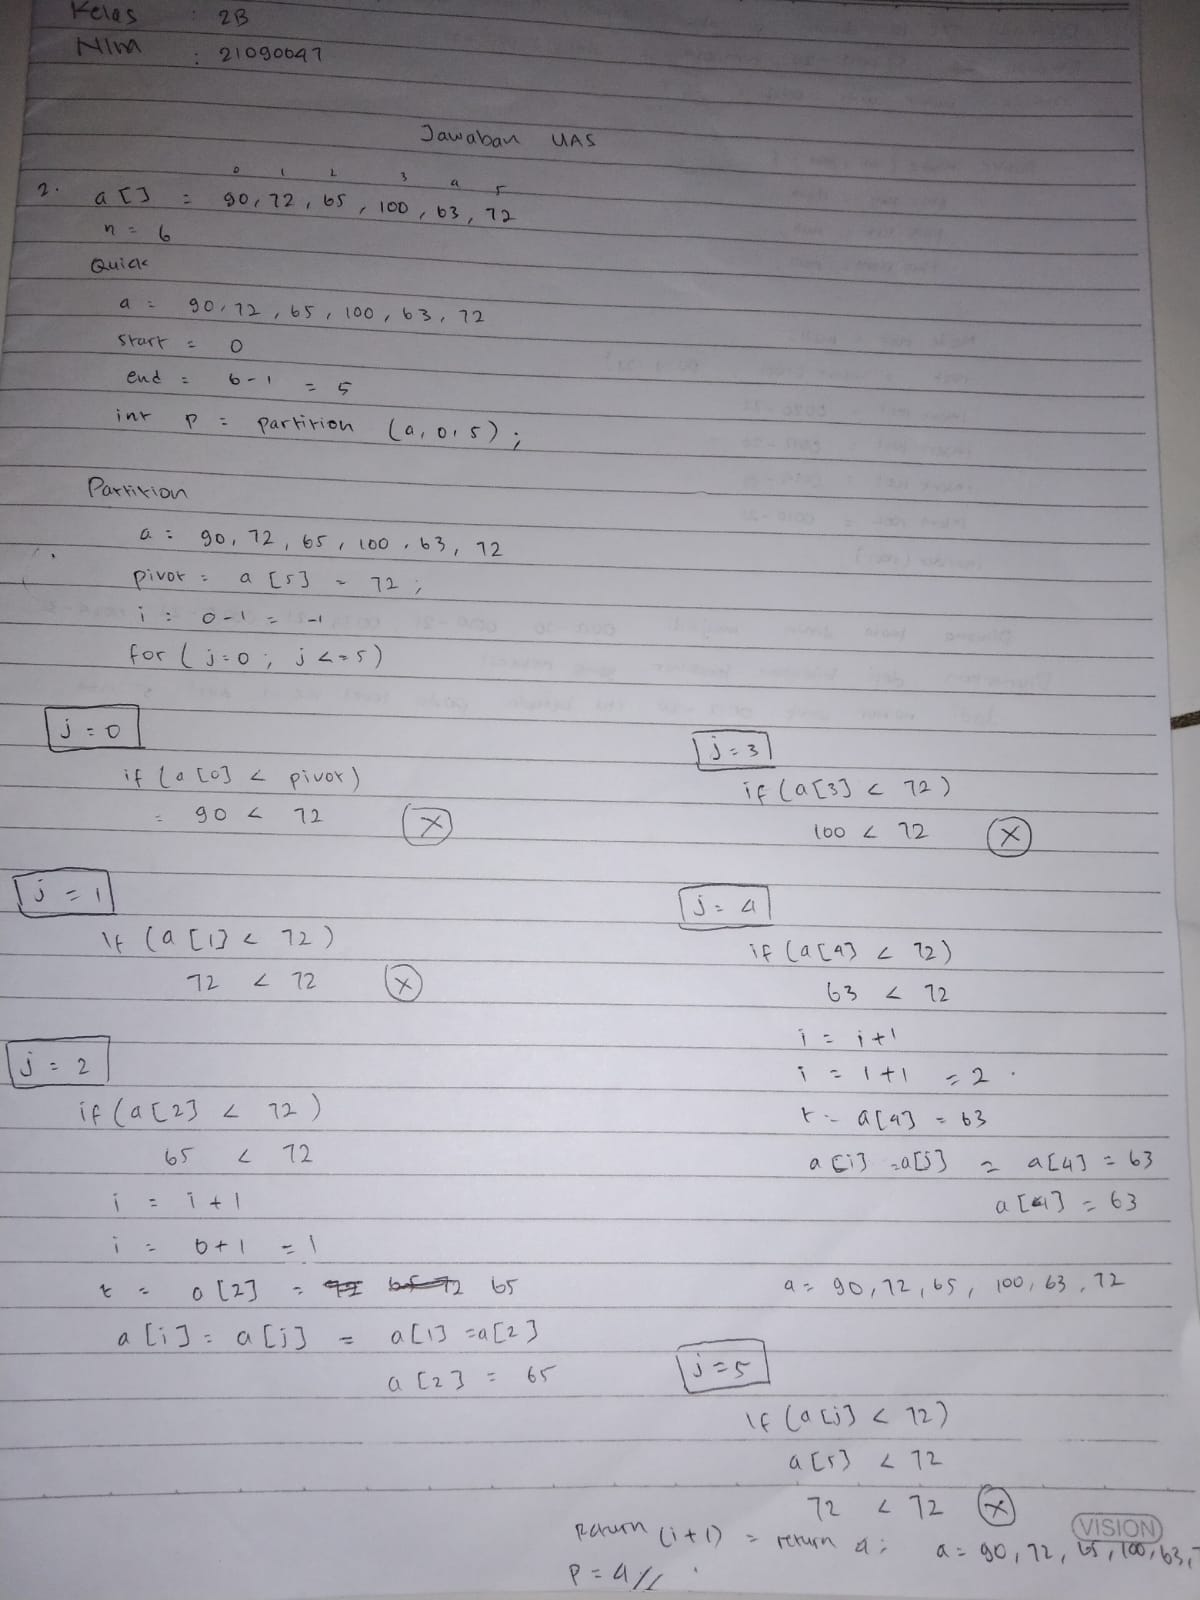 Kelas : 2B
NIM : 21090047
Jawaban UAS
0 1 2 3 4 5
2. a [] = 90, 72, 65, 100, 63, 72
n = 6
Quick
a = 90, 72, 65, 100, 63, 72
start = 0
end = 6-1 = 5
int p = partition (a, 0, 5) ;
Partition
a = 90, 72, 65, 100, 63, 72
pivot = a [5] = 72 ;
i = 0-1 = -1
for ( j=0 ; j <=5)
j = 0
if (a [0] < pivot)
= 90 < 72 X
j = 1
If (a [1] < 72 )
72 < 72 X
j = 2
if (a [2] < 72 )
65 < 72
i = i + 1
i = 0+1 = 1
t = a [2] = 65
a [i] = a [j] = a [1] = a [2]
a [2] = 65
j = 3
if (a [3] < 72 )
100 < 72 X
j = 4
if (a [4] < 72)
63 < 72
i = i+1
i = 1+1 = 2
t = a[4] = 63
a [i] = a[j] = a[4] = 63
a [4] = 63
a = 90, 72, 65, 100, 63, 72
j = 5
If (a [j] < 72)
a [5] < 72
72 < 72 X
Return (i+1) = return 4; a = 90, 72, 65, 100, 63, 7
P = 4 //
VISION